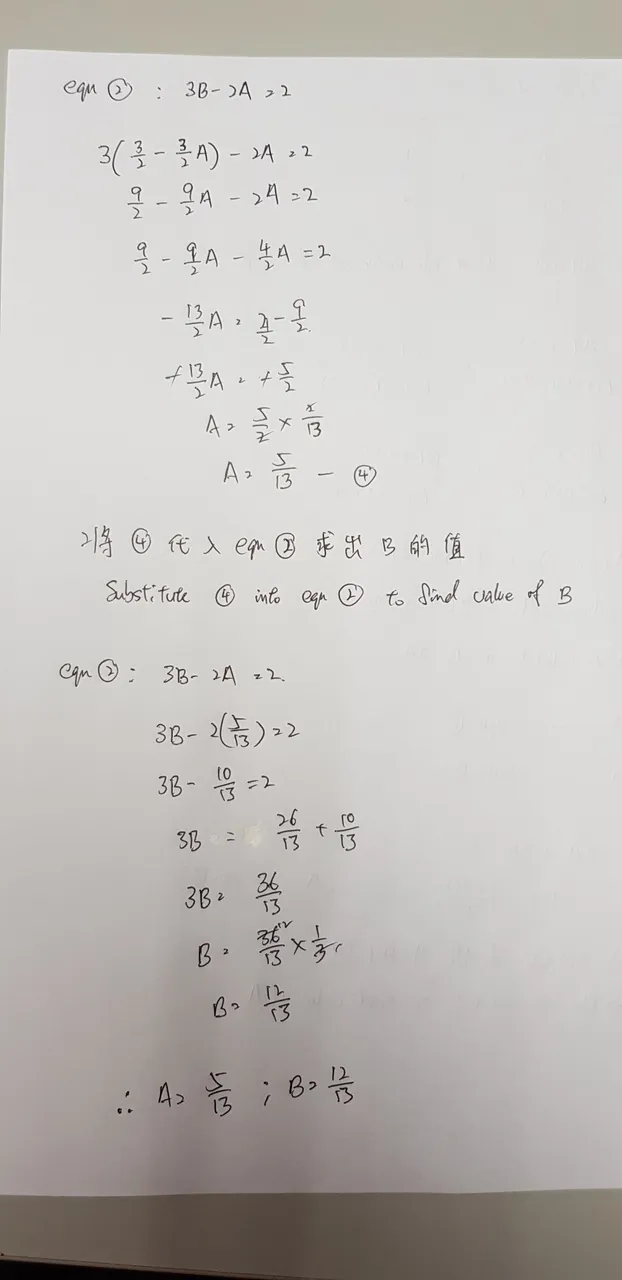 eqn ② : 3B - 2A = 2
3(3/2 - 3/2 A) - 2A = 2
9/2 - 9/2 A - 2A = 2
9/2 - 9/2 A - 4/2 A = 2
- 13/2 A = 4/2 - 9/2
+ 13/2 A = + 5/2
A = 5/2 × 2/13
A = 5/13 - ④
将 ④ 代入 eqn ② 求出 B 的值
Substitute ④ into eqn ② to find value of B
eqn ② : 3B - 2A = 2.
3B - 2(5/13) = 2
3B - 10/13 = 2
3B = 26/13 + 10/13
3B = 36/13
B = 36 12/13 × 1/3
B = 12/13
∴ A = 5/13 ; B = 12/13